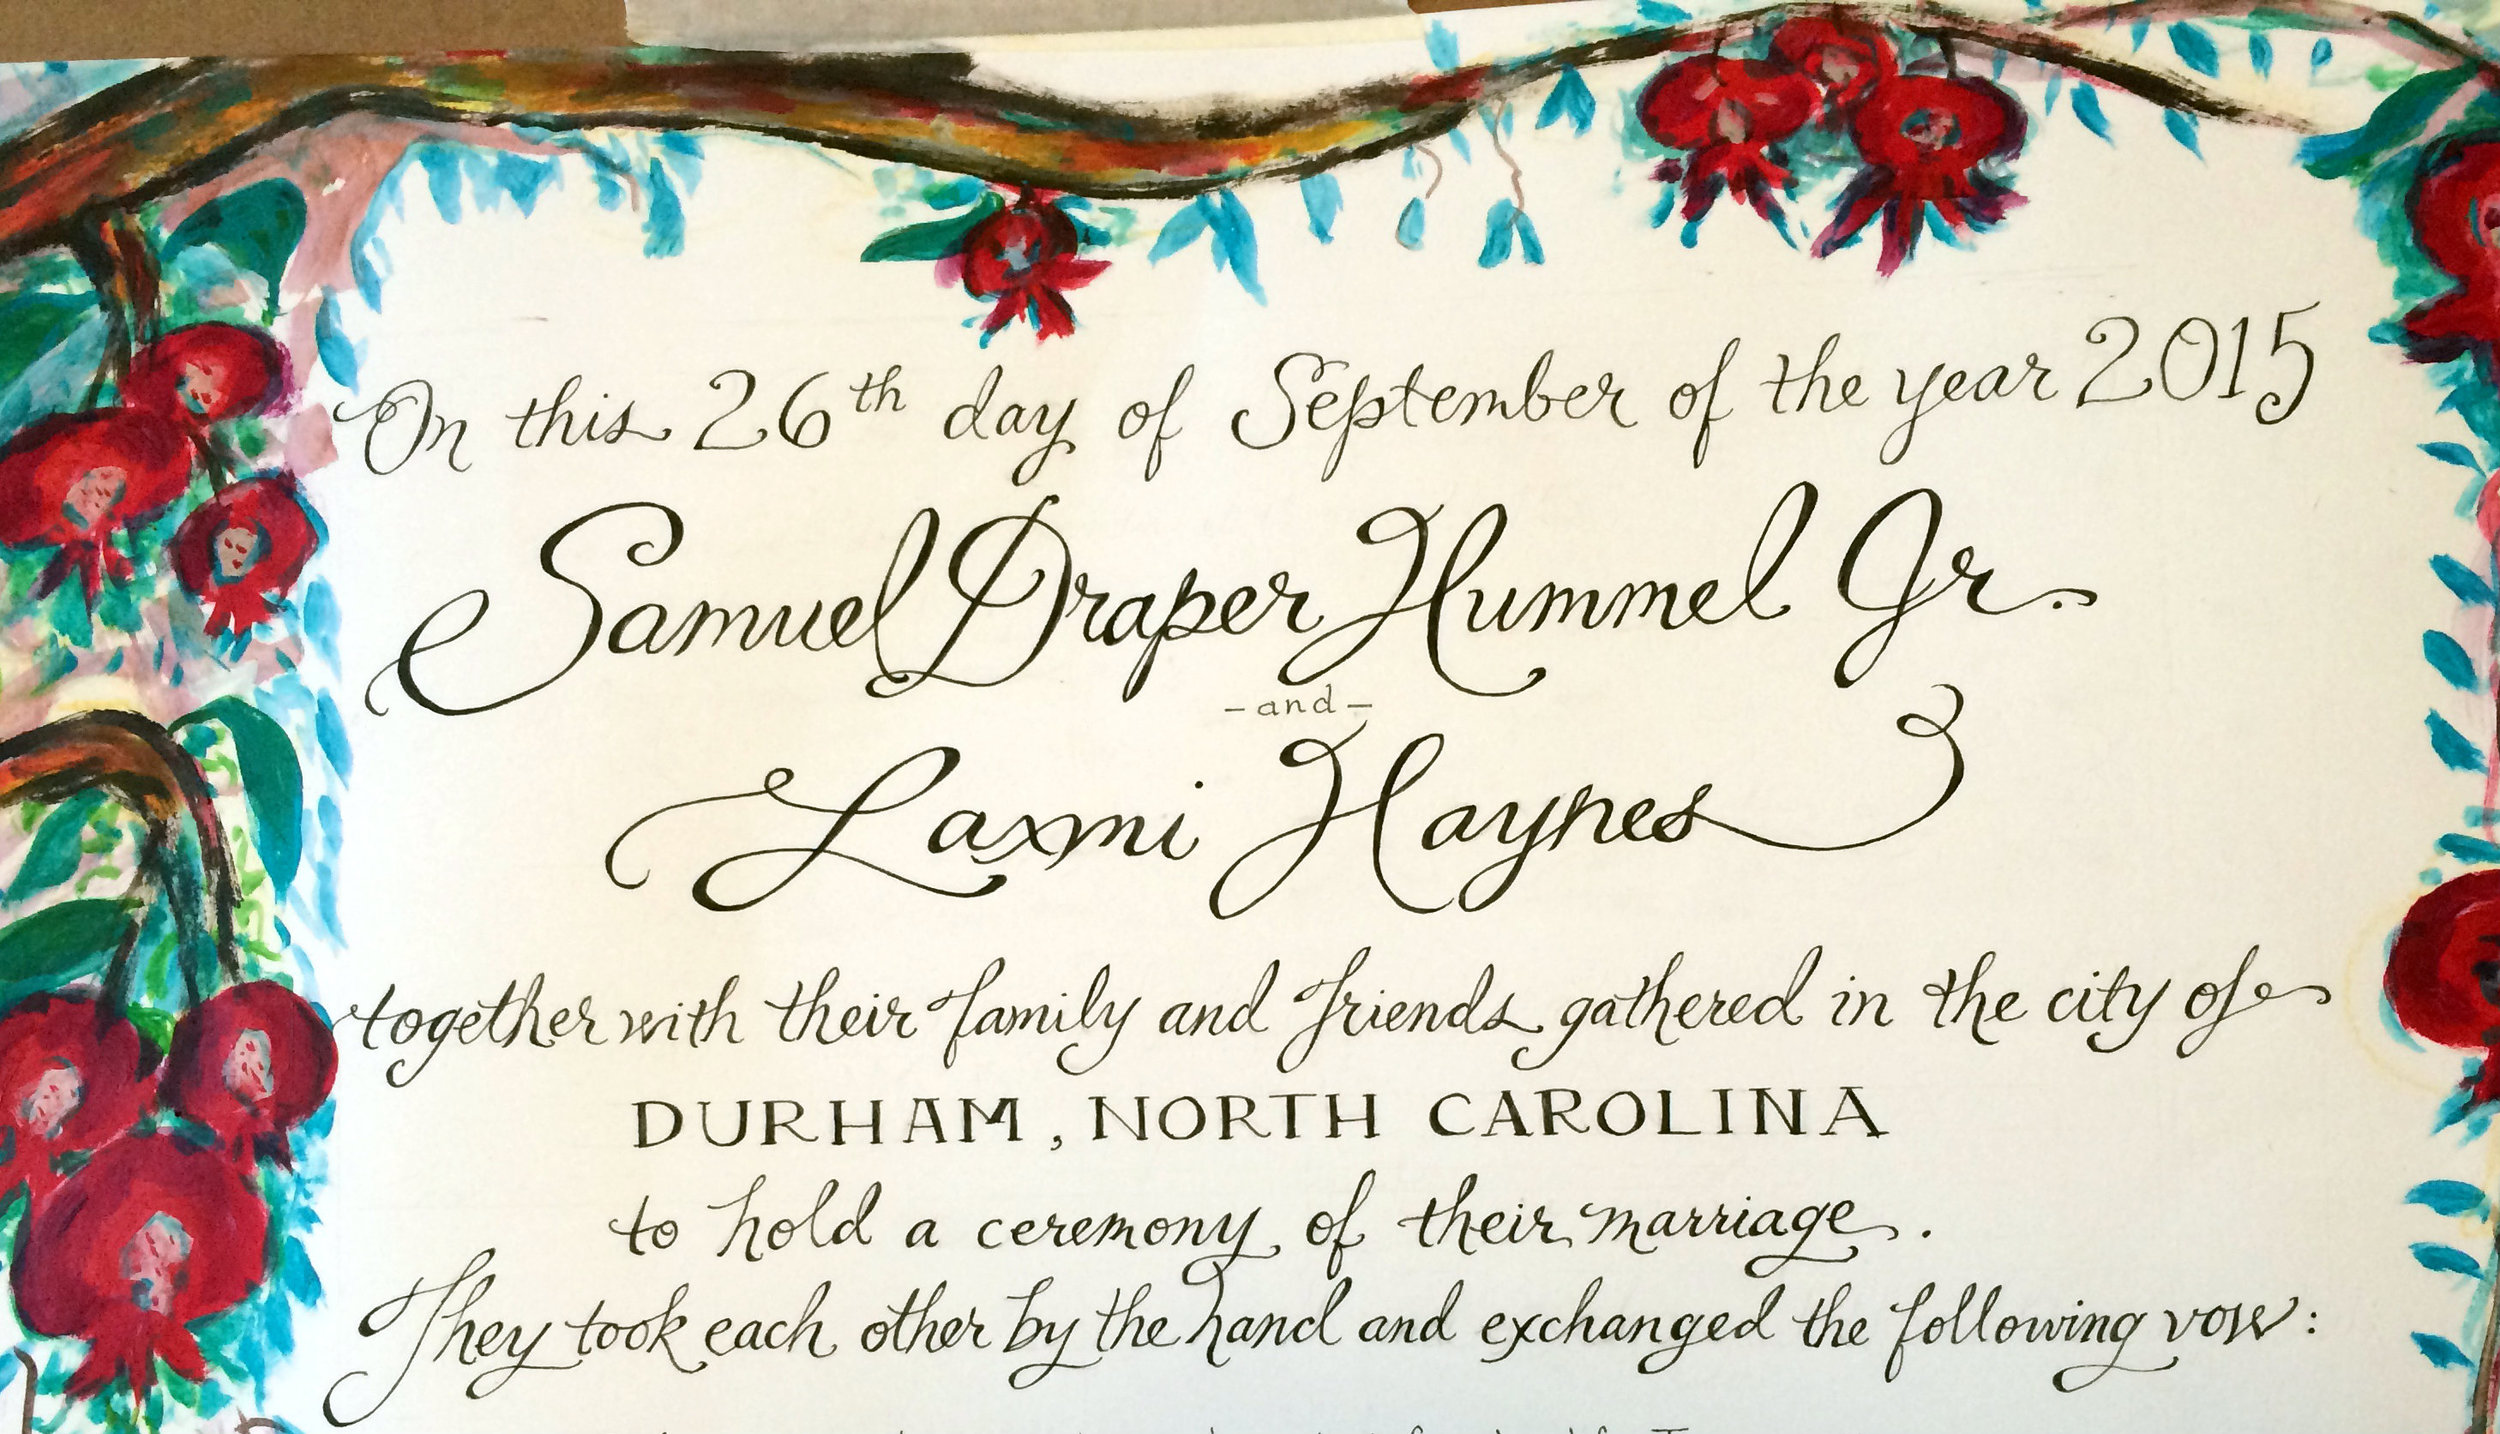 On this 26th day of September of the year 2015
Samuel Draper Hummel Jr.
-and-
Laxmi Haynes
together with their family and friends gathered in the city of
DURHAM, NORTH CAROLINA
to hold a ceremony of their marriage.
They took each other by the hand and exchanged the following vow: